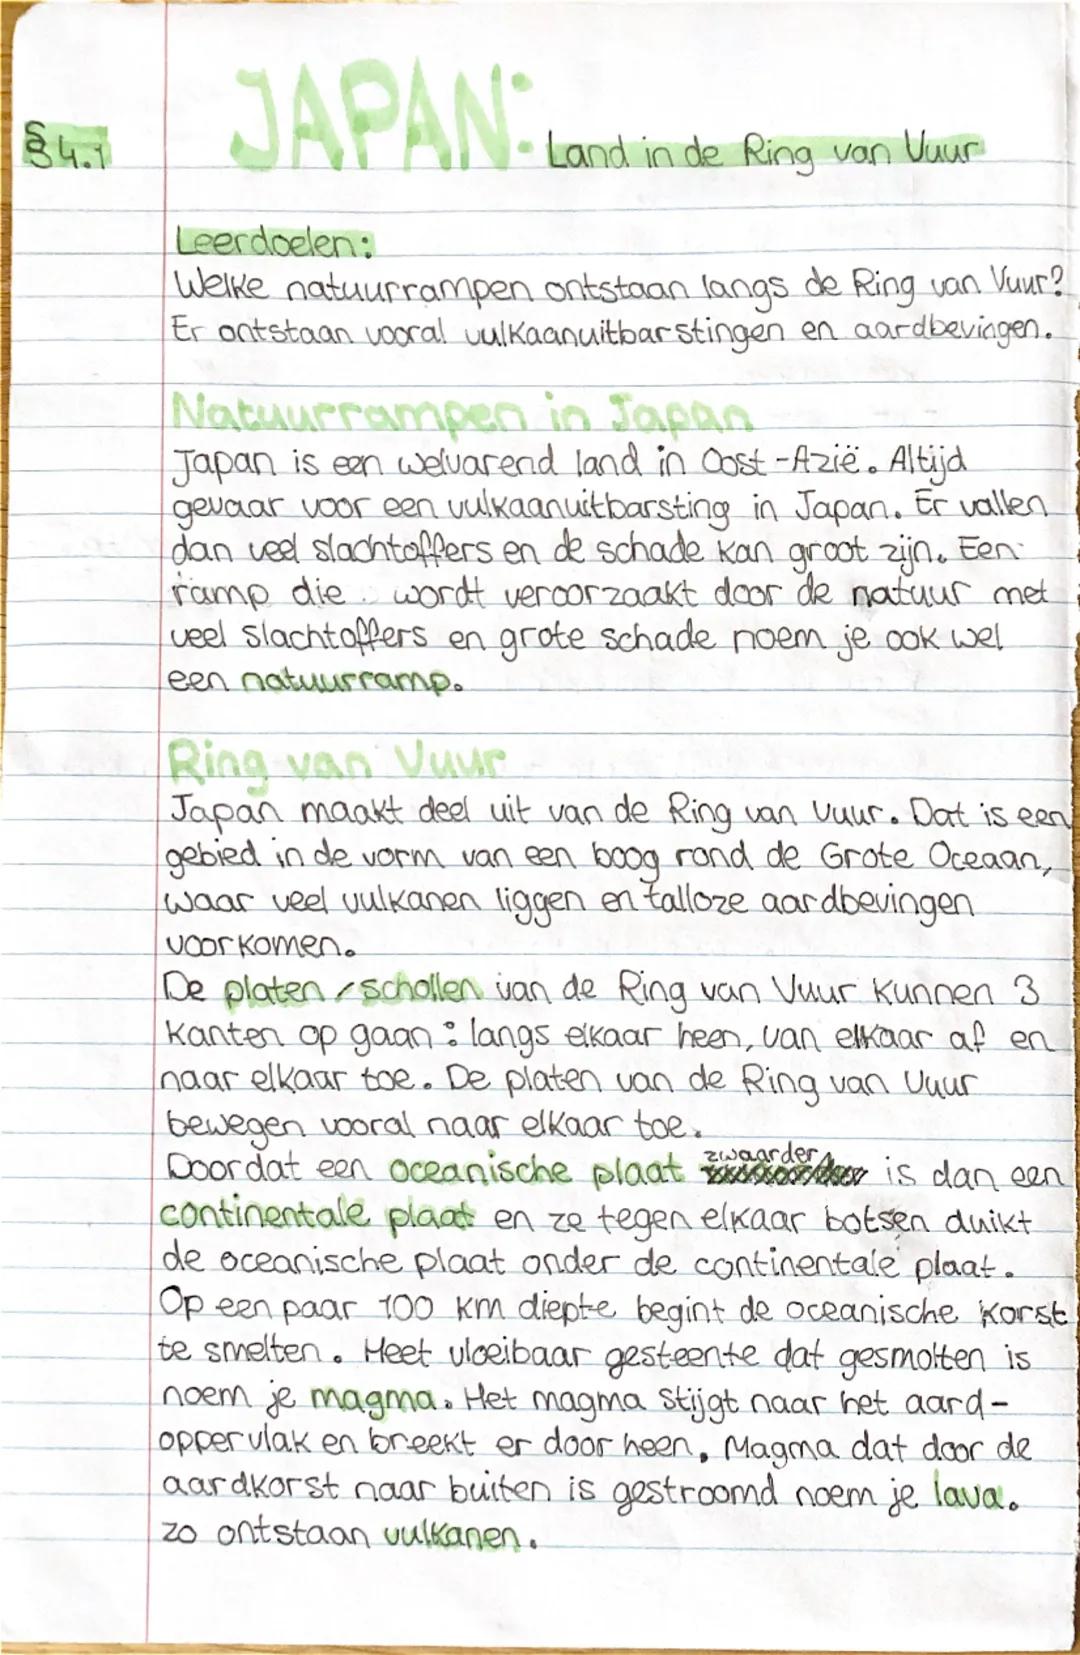 §4.1
JAPAN: Land in de Ring van Vuur
Leerdoelen:
Welke natuurrampen ontstaan langs de Ring van Vuur?
Er ontstaan vooral vulkaanuitbarstingen en aardbevingen.
Natuurrampen in Japan
Japan is een welvarend land in Oost-Azië. Altijd
gevaar voor een vulkaanuitbarsting in Japan. Er vallen
dan veel slachtoffers en de schade kan groot zijn. Een
ramp die wordt veroorzaakt door de natuur met
veel slachtoffers en grote schade noem je ook wel
een natuurramp.
Ring van Vuur
Japan maakt deel uit van de Ring van Vuur. Dat is een
gebied in de vorm van een boog rond de Grote Oceaan,
waar veel vulkanen liggen en talloze aardbevingen
voorkomen.
De platen / schollen van de Ring van Vuur kunnen 3
kanten op gaan: langs elkaar heen, van elkaar af en
naar elkaar toe. De platen van de Ring van Vuur
bewegen vooral naar elkaar toe.
Doordat een oceanische plaat zwaarder is dan een
continentale plaat en ze tegen elkaar botsen duikt
de oceanische plaat onder de continentale plaat.
Op een paar 100 km diepte begint de oceanische korst
te smelten. Heet vloeibaar gesteente dat gesmolten is
noem je magma. Het magma stijgt naar het aard-
oppervlak en breekt er doorheen. Magma dat door de
aardkorst naar buiten is gestroomd noem je lava.
zo ontstaan vulkanen.